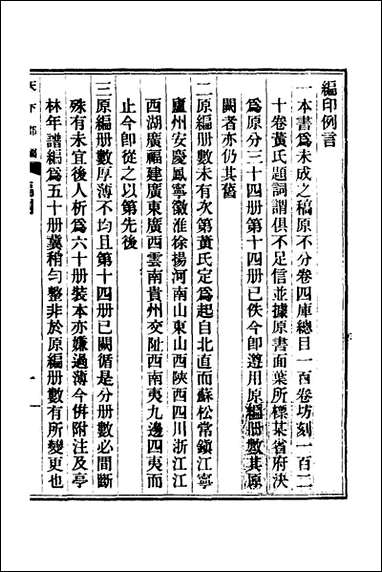 編印例言
一本書爲未成之稿原不分卷四庫總目一百卷坊刻一百二
十卷黃氏題詞謂俱不足信並據原書面葉所標某省府決
爲原分三十四册第十四册已佚今卽遵用原編册數其原
闕者亦仍其舊
二原編册數未有次第黃氏定爲起自北直而蘇松常鎮江寧
廬州安慶鳳寧徽淮徐揚河南山東山西陝西四川浙江江
西湖廣福建廣東廣西雲南貴州交阯西南夷九邊四夷而
止今卽從之以第先後
三原編册數厚薄不均且第十四册已闕循是分册數必間斷
殊有未宜後人析爲六十册裝本亦嫌過薄今倂附注及亭
林年譜編爲五十册冀稍勻整非於原編册數有所變更也
天下郡
一